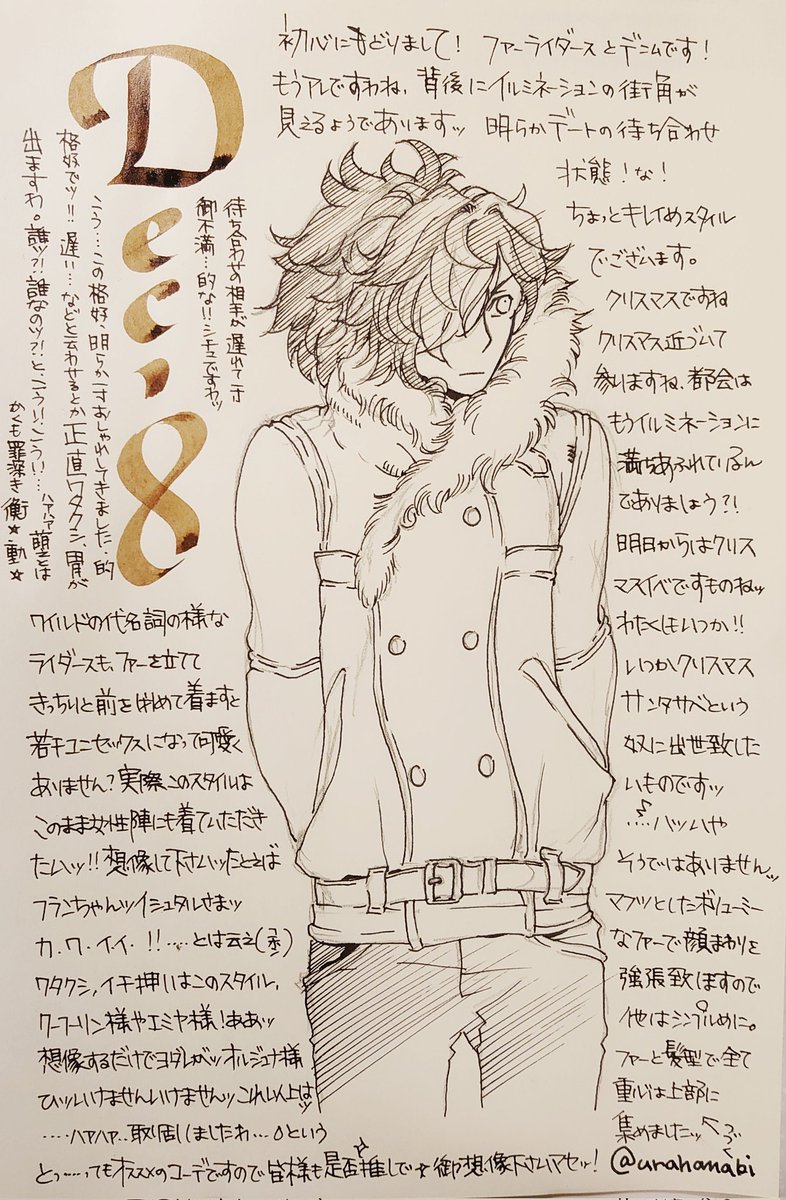 Dec,8
初心にもどりまして！ ファーライダースとデニムです！
もうアレですわね、背後にイルミネーションの街角が
見えるようでありますッ 明らかデートの待ち合わせ
状態！な！
ちょっとキレイめスタイル
でございます。
クリスマスですね
クリスマス近づいて
参りますね、都会は
もうイルミネーションに
満ちあふれているん
でありましょう？！
明日からはクリス
マスイベですものねッ
わたくしもいつか！！
いつかクリスマス
サンタサバという
奴に出世致した
いものですッ
…ハッいや
そうではありませんッ
マフッとしたボリューミー
なファーで顔まわりを
強張致しますので
他はシンプルめに。
ファーと髪型で全て
重心は上部に
集めましたッ
待ち合わせの相手が遅れてき
御不満…的な！！シチュですわッ
こう…この格好、明らか一寸おしゃれしてきました、的
格好でッ！！遅い…などと云わせるとか正直ワタクシ、胃が
出ますわ。誰ッ？！誰なのッ？！と、こういう！こういう！…ハァハァ萌えとは
かくも罪深き衝☆動☆
ワイルドの代名詞の様な
ライダースも、ファーを立てて
きっちりと前をはめて着ますと
若干ユニセックスになって可愛く
ありません？実際このスタイルは
このまま女性陣にも着ていただき
たいッ！！想像して下さいッたとえば
フランちゃんッイシュタルさまッ
カ．ワ．イ．イ．！！…とは云え
ワタクシ、イチ押しはこのスタイル、
クーフーリン様やエミヤ様！ああッ
想像するだけでヨダレがッオルジュナ様
ひッいけませんいけませんッこれ以上はッ
…ハァハァ‥取り乱しましたわ…という
とっ……ってもオススメのコーデですので皆様も是否推しで☆御想像下さいマセッ！
@urahanabi